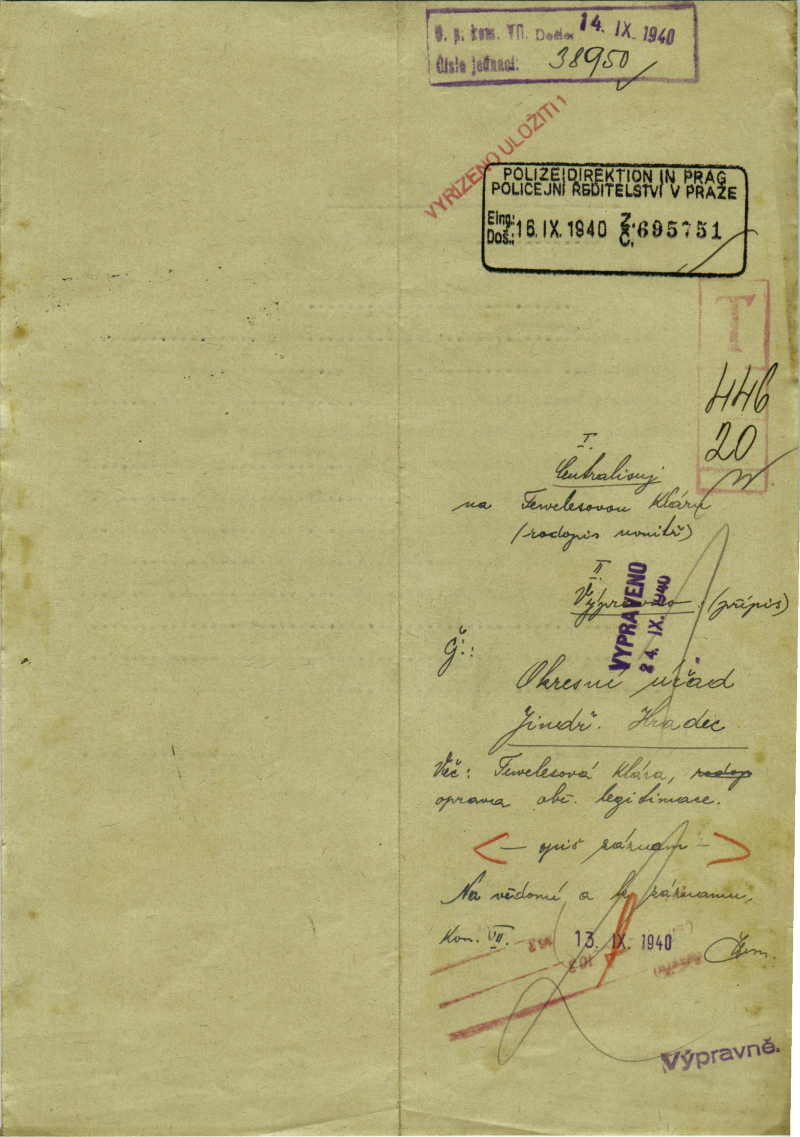 Došlo: 14. IX. 1940
Číslo jednací: 38950
VYŘÍZENO ULOŽITI!
POLIZEIDIREKTION IN PRAG
POLICEJNÍ ŘEDITELSTVÍ V PRAZE
Eing.: Doš.: 16. IX. 1940 Z. Č. 695751
446
20
I.
Centralisuj
na Fewelesovou Kláru
(rodopis uvnitř)
II.
Vypraveno (přípis)
VYPRAVENO
24. IX. 1940
Č.:
Okresní úřad
Jindř. Hradec
Věc: Fewelesová Klára, rodop
oprava obč. legitimace.
— opiš záznam —
Na vědomí a k záznamu,
Kom. VII. 13. IX. 1940
Výpravně.